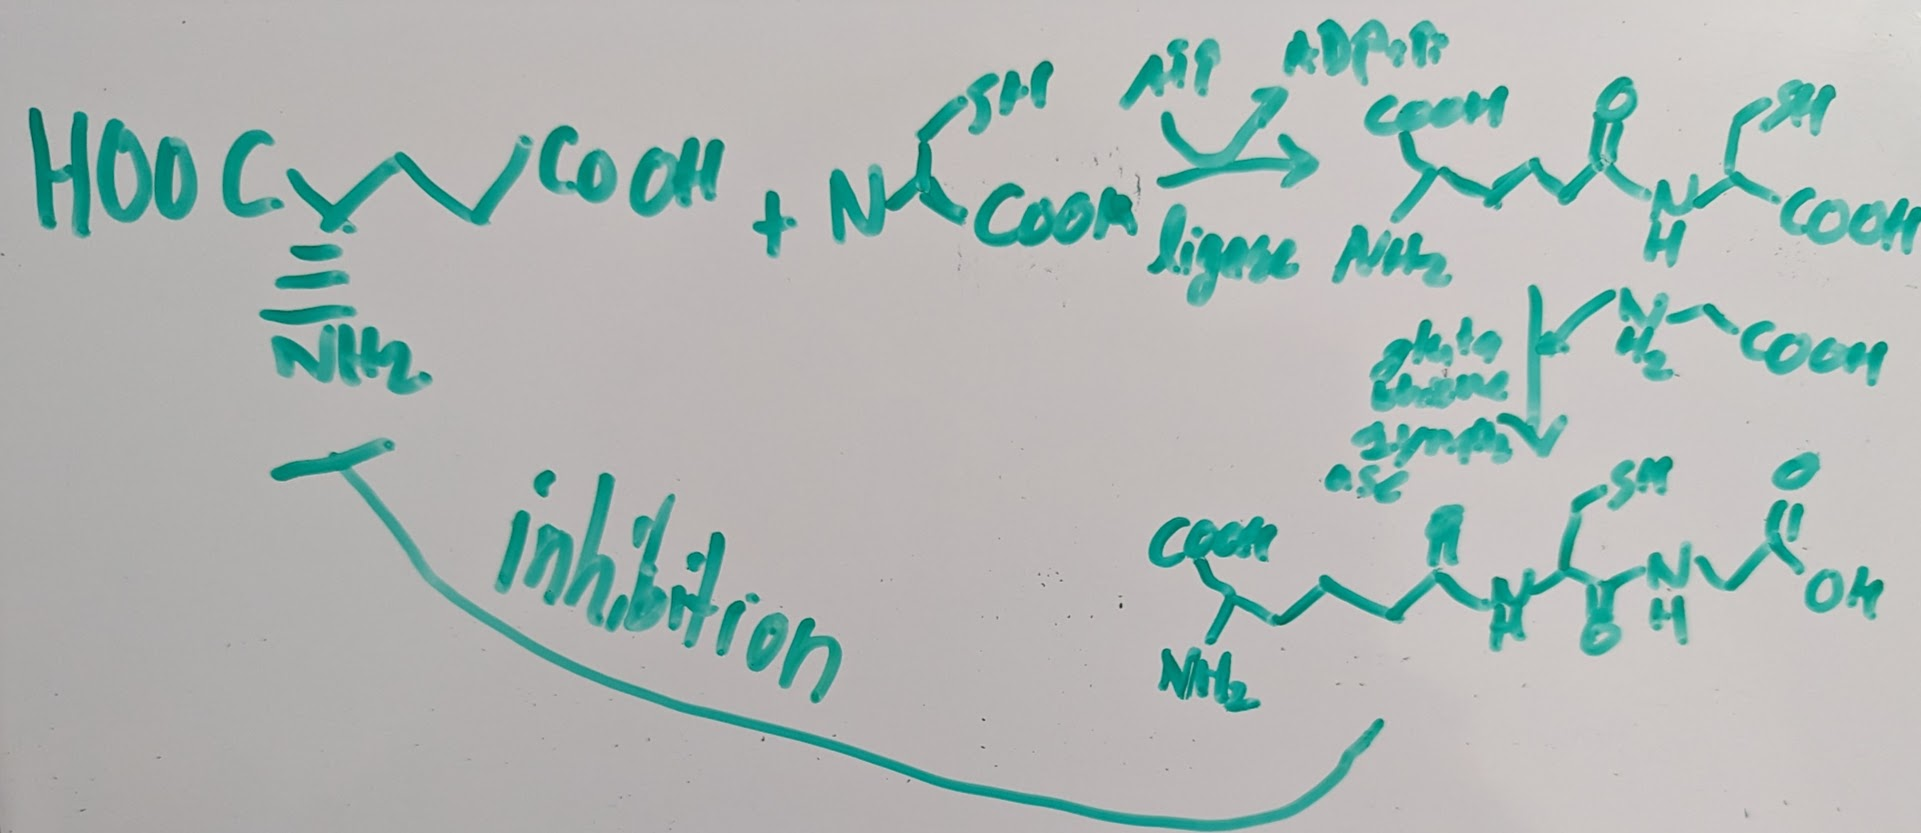 HOOC COOH
NH2
+
N SH
COOH
ATP ADP+Pi
ligase
COOH O SH
NH2 N
H COOH
gluta
thione
synth
ase
N
H2 COOH
COOH O SH O
NH2 N
H O N
H OH
inhibition